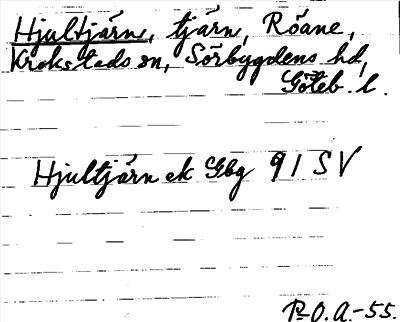 Hjultjärn, tjärn, Röane,
Krokstads sn, Sörbygdens hd,
Göteb. l.
Hjultjärn ek Gbg 91 SV
R.O.A.-55.